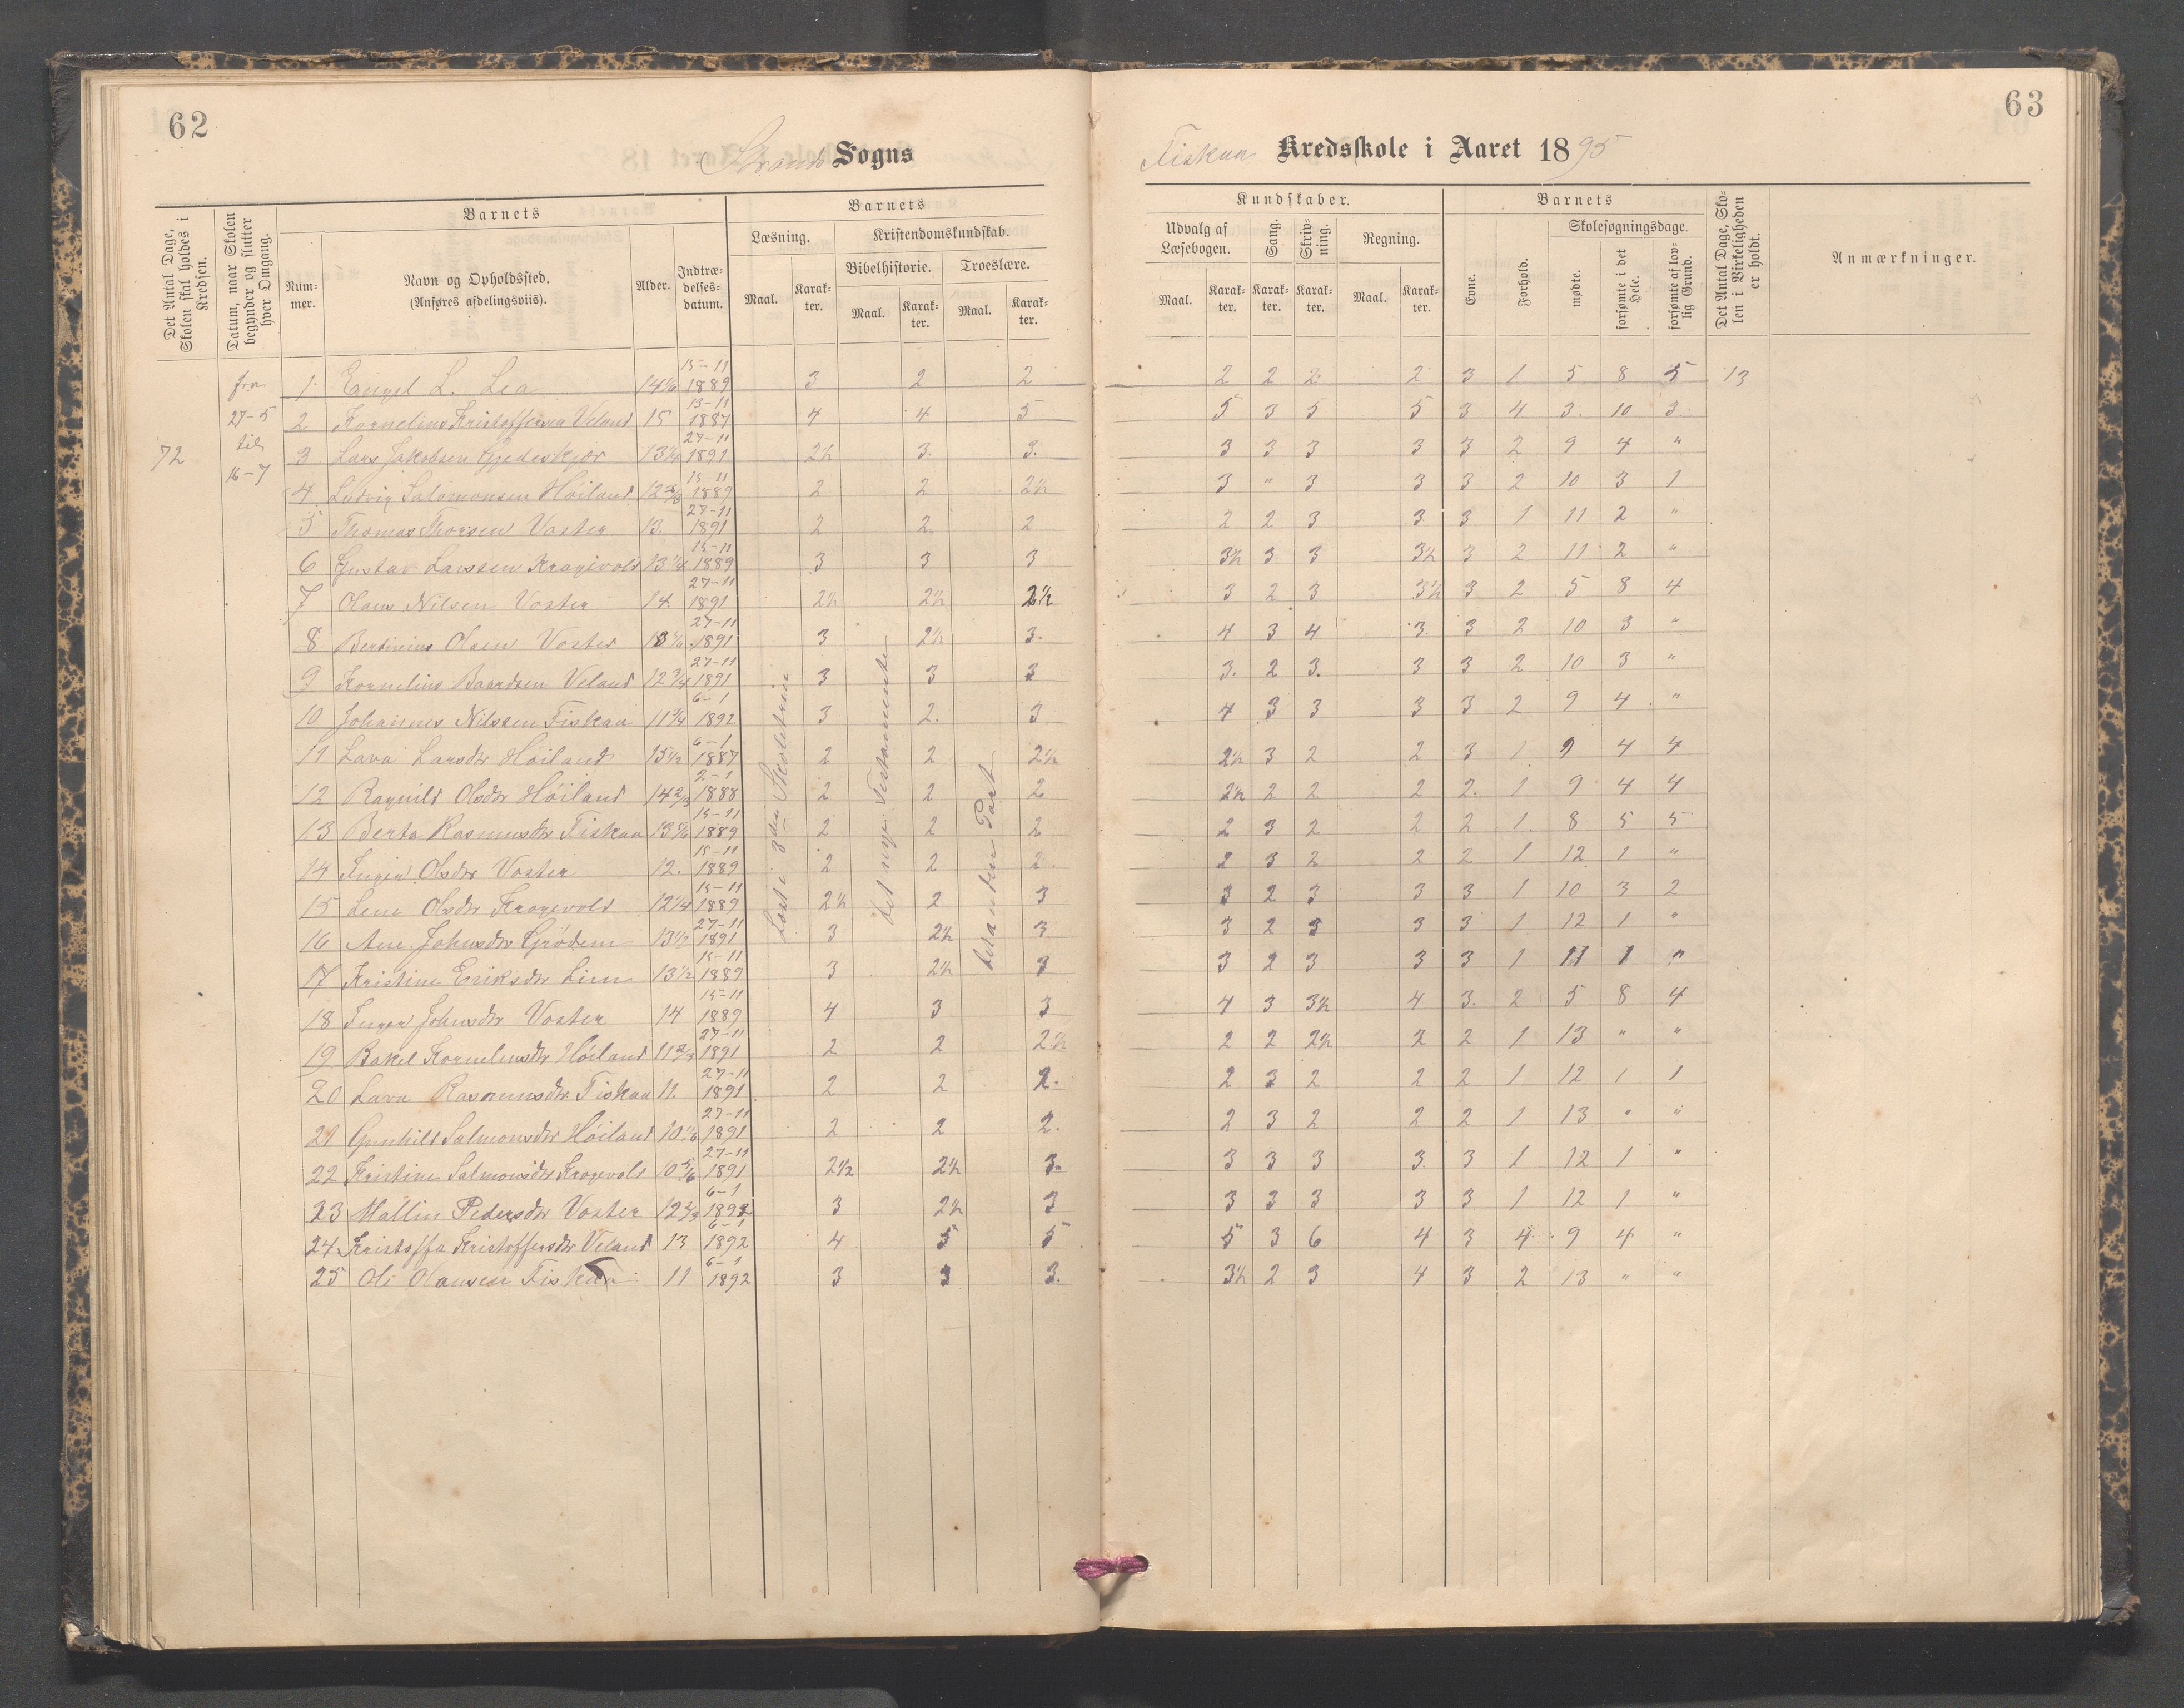 62
Strand Sogns
Det Antal Dage, Skolen skal holdes i Kredsen.
Datum, naar Skolen begynder og slutter hver Omgang.
Barnets
Num-mer.
Navn og Opholdssted.
(Anføres afdelingsviis).
Alder.
Indtræ-delses-datum.
Barnets
Læsning.
Kristendomskundskab.
Bibelhistorie.
Troeslære.
Maal.
Karak-ter.
Maal.
Karak-ter.
Maal.
Karak-ter.
72
fra
27-5
til
16-7
1 Engel L. Lea 14 1/6 15-11 1889 3 2 2
2 Kornelius Kristoffersen Veland 15 15-11 1887 4 4 5
3 Lars Jakobsen Gjedeskjær 13 1/4 27-11 1891 2½ 3. 3.
4 Ludvig Salomonsen Höiland 12 5/6 15-11 1889 2 2 2½
5 Thomas Thorsen Voster 13. 27-11 1891 2 2. 2
6 Gustav Larssen Kragevold 13 1/6 15-11 1889 3 3 3
7 Olaus Nilsen Voster 14. 27-11 1891 2½ 2½ 2½
8 Bertinius Olsen Voster 27-11 1891 3 2½ 3.
9 Kornelius Baardsen Veland 12 3/4 27-11 1891 3 3 3
10 Johannes Nilssen Fiskaa 11 3/4 6-1 1892 3 2. 3
11 Lava Larsdtr Höiland 15 1/2 6-1 1887 2 2 2½
12 Ragnild Olsdtr Höiland 14 2/3 2-1 1888 2 2 2
13 Berta Rasmusdtr Fiskaa 13 5/6 15-11 1889 2 2 2
14 Inger Olsdtr Voster 12. 15-11 1889 2 2 2.
15 Lene Olsdtr Kragevold 12 1/4 15-11 1889 2½ 2 3
16 Ane Johnsdtr Grödem 13 1/2 27-11 1891 3 2½ 3
17 Kristine Eriksdtr Lien 13 1/2 15-11 1889 3 2½ 3
18 Inger Johnsdtr Voster 14 15-11 1889 4 3 3
19 Rakel Korneliusdtr Höiland 11 2/3 27-11 1891 2 2 2½
20 Lava Rasmusdtr Fiskaa 11. 27-11 1891 2 2 2.
21 Gunhild Salmonsdtr Höiland 10 1/6 27-11 1891 2 2 2.
22 Kristine Salmonsdtr Kragevold 10 5/6 27-11 1891 2½ 2½ 3.
23 Mallin Pedersdtr Voster 12 2/3 6-1 1892 3 2½ 3
24 Kristoffa Kristoffersdtr Veland 13 6-1 1892 4 5 5
25 Ole Olausen Fiskaa 11 6-1 1892 3 3 3.
Læst i 3die Skoletrin
det nye Testamente
det anden Part
63
Fiskaa Kredsskole i Aaret 1895
Kundskaber.
Udvalg af Læsebogen.
Sang.
Skriv-ning.
Regning.
Maal.
Karak-ter.
Karak-ter.
Karak-ter.
Maal.
Karak-ter.
Barnets
Evne.
Forhold.
Skolesøgningsdage.
mødte.
forsømte i det Hele.
forsømte af lov-lig Grund.
Det Antal Dage, Sko-len i Virkeligheden er holdt.
Anmærkninger.
2 2 2 2 3 1 5 8 5 13
5 3 5 5 3 4 3. 10 3
3 3 3 3 3 2 9 4 "
3 " 3 3 3 2 10 3 1
2 2 3 3 3 1 11 2 "
3½ 3 3 3½ 3 2 11 2 "
3 2 3 3½ 3 2 5 8 4
4 3 4 3. 3 2 10 3 "
3. 2 3. 3 3 2 10 3 "
4 3 3 3 3 2 9 4 "
2½ 3 2 2 3 1 9 4 4
2½ 2 2 2 2. 1 9 4 4
2 3 2 2 2 1. 8 5 5
2 3 2 2 2 1 12 1 "
3 2 3 3 3 1 10 3 2
3 2 3 3 3 1 12 1 "
3 2 3 3 3 1 11 1 "
4 3 3½ 4 3. 2 5 8 4
2 2 2½ 2 2 1 13 " "
2 3 2 2 2 1 12 1 1
2 3 2 2 2 1 13 " "
3 3 3 3. 3 1 12 1 "
3 3 3 3 3 1 12 1 "
5 3 6 4 3 4 9 4 "
3½ 2 3 4 3 2 13 " "